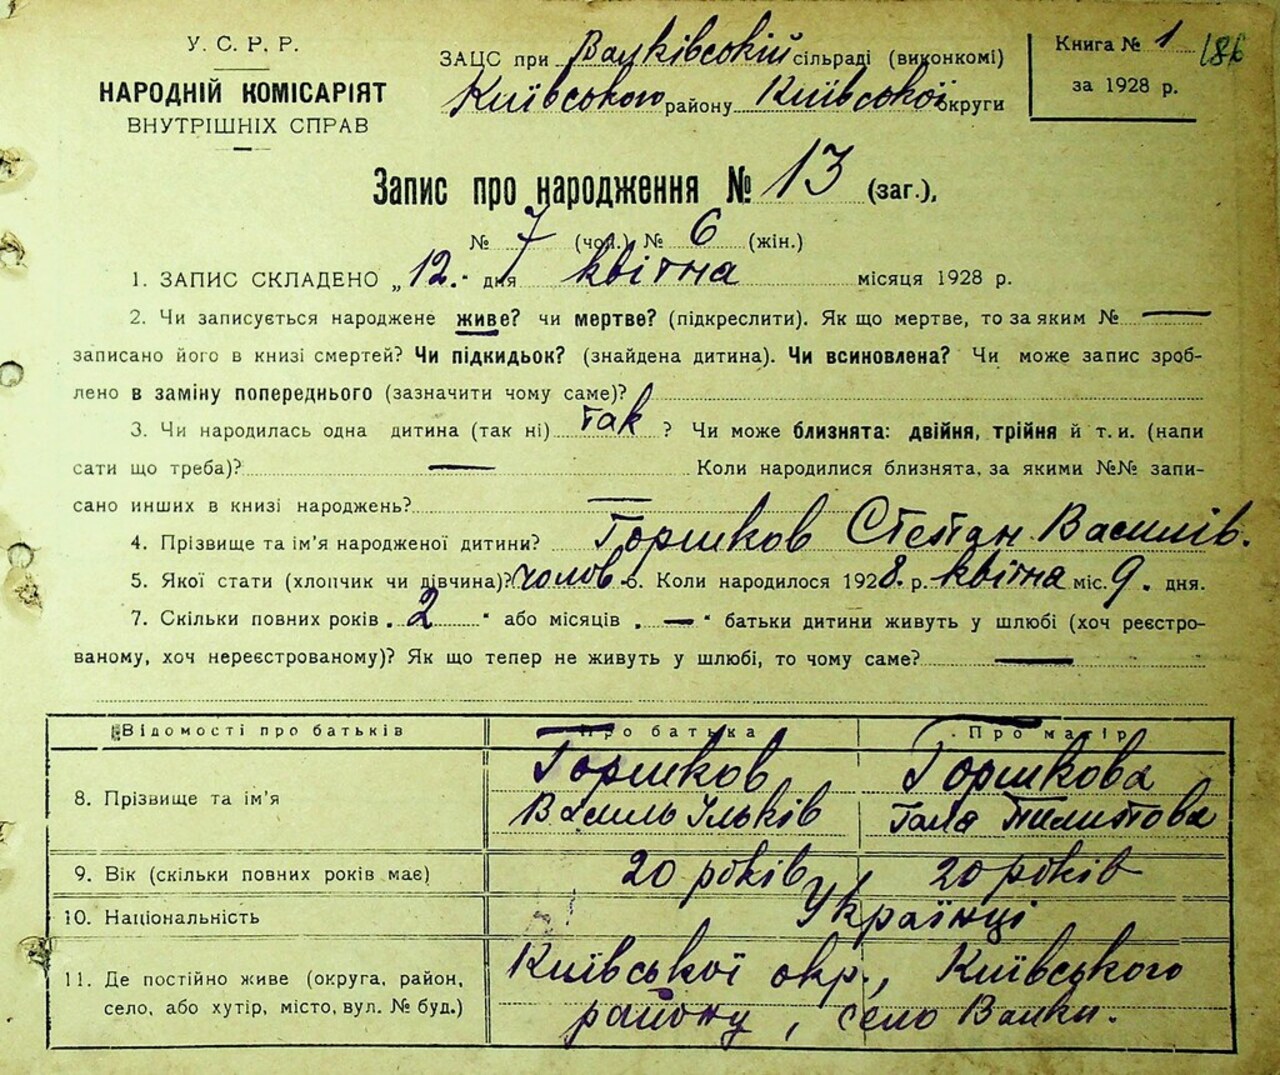 У. С. Р. Р.
НАРОДНІЙ КОМІСАРІЯТ
ВНУТРІШНІХ СПРАВ
ЗАЦС при сільраді (виконкомі)
Київського району Київської округи
Книга № 1
за 1928 р.
186
Запис про народження № 13 (заг.),
№ 7 (чол.) № 6 (жін.)
1. ЗАПИС СКЛАДЕНО „12." дня квітна місяця 1928 р.
2. Чи записується народжене живе? чи мертве? (підкреслити). Як що мертве, то за яким № —
записано його в книзі смертей? Чи підкидьок? (знайдена дитина). Чи всиновлена? Чи може запис зроб-
лено в заміну попереднього (зазначити чому саме)?
3. Чи народилась одна дитина (так ні) так ? Чи може близнята: двійня, трійня й т. и. (напи
сати що треба)? — Коли народилися близнята, за якими №№ запи-
сано инших в книзі народжень? —
4. Прізвище та ім'я народженої дитини? Горшков Степан Василів.
5. Якої стати (хлопчик чи дівчина)? чолов. 6. Коли народилося 1928. р. квітна міс. 9. дня.
7. Скільки повних років „ 2 " або місяців „ — " батьки дитини живуть у шлюбі (хоч реєстро-
ваному, хоч нереєстрованому)? Як що тепер не живуть у шлюбі, то чому саме? —
Відомості про батьків Про батька Про матір
8. Прізвище та ім'я Горшков Василь Ільків Горшкова Пилипова
9. Вік (скільки повних років має) 20 років 20 років
10. Національність Українці
11. Де постійно живе (округа, район, Київської окр., Київського
село, або хутір, місто, вул. № буд.) району, село